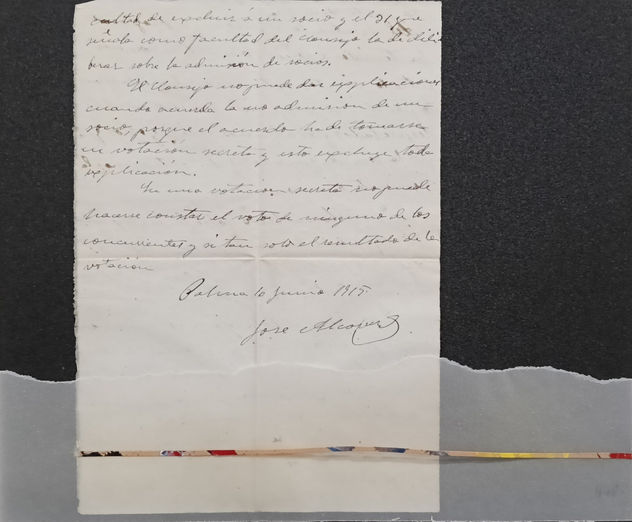 cultad de excluir á un socio y el 21 que
señala como facultad del Consejo la de delibe
berar sobre la admisión de socios.
El Consejo no puede dar explicaciones
cuando acuerda la no admisión de un
socio, porque el acuerdo ha de tomarse
en votación secreta y esto excluye toda
explicación.
En una votación secreta no puede
hacerse constar el voto de ninguno de los
concurrentes y si tan solo el resultado de la
votación
Palma 10 Junio 1915.
José Alcover